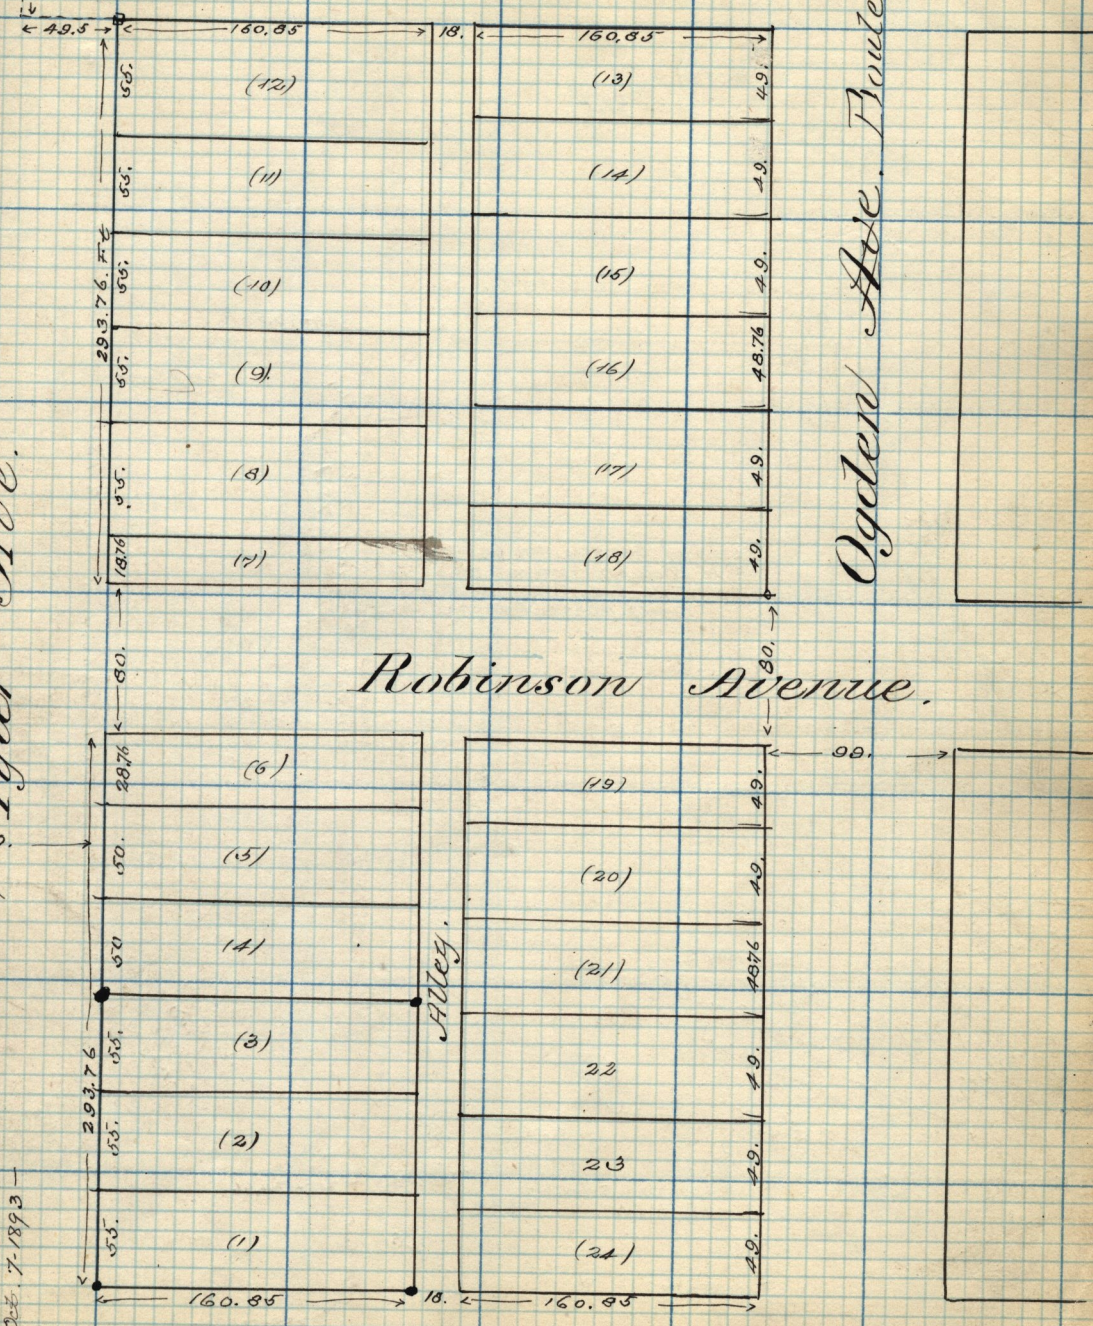 49.5 160.85 18. 160.85
55. (12) (13) 49.
55. (11) (14) 49.
293.76. Ft
55. (10) (15) 49.
55. (9) (16) 48.76
55. (8) (17) 49.
18.76 (7) (18) 49.
Ogden Ave.
80. 80.
Robinson Avenue.
99.
28.76 (6) (19) 49.
50. (5) (20) 49.
50 (4) (21) 48.76
Alley.
55. (3) 22 49.
293.76
55. (2) 23 49.
55. (1) (24) 49.
160.85 18. 160.85
Oct. 7-1893-